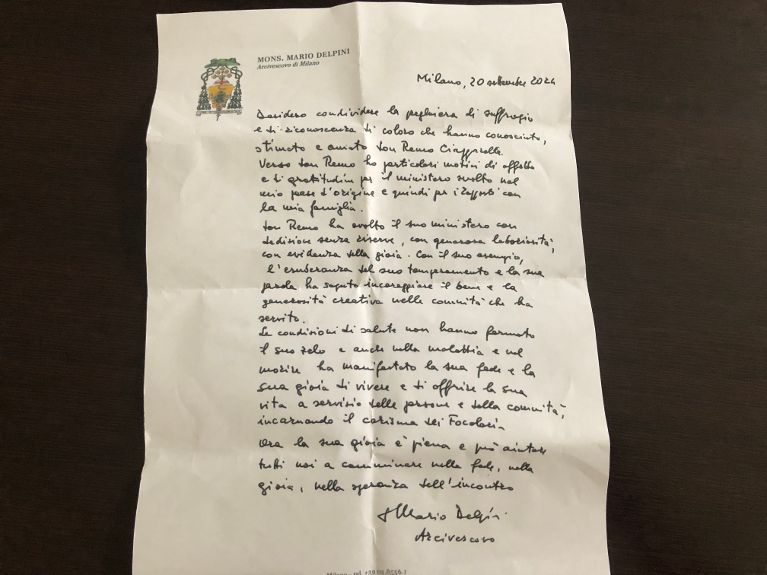 MONS. MARIO DELPINI
Arcivescovo di Milano
Milano, 20 settembre 2024
Desidero condividere la preghiera di suffragio
e di riconoscenza di coloro che hanno conosciuto,
stimato e amato don Remo Ciapparella.
Verso don Remo ho particolari motivi di affetto
e di gratitudine per il ministero svolto nel
mio paese d'origine e quindi per i rapporti con
la mia famiglia.
Don Remo ha svolto il suo ministero con
dedizione senza riserve, con generosa laboriosità,
con evidenza della gioia. Con il suo esempio,
l'esuberanza del suo temperamento e la sua
parola ha saputo incoraggiare il bene e la
generosità creativa nelle comunità che ha
servito.
Le condizioni di salute non hanno fermato
il suo zelo e anche nella malattia e nel
morire ha manifestato la sua fede e la
sua gioia di vivere e di offrire la sua
vita a servizio delle persone e della comunità,
incarnando il carisma dei Focolarin
Ora la sua gioia è piena e può aiutare
tutti noi a camminare nella fede, nella
gioia, nella speranza dell'incontro
+ Mario Delpini
Arcivescovo